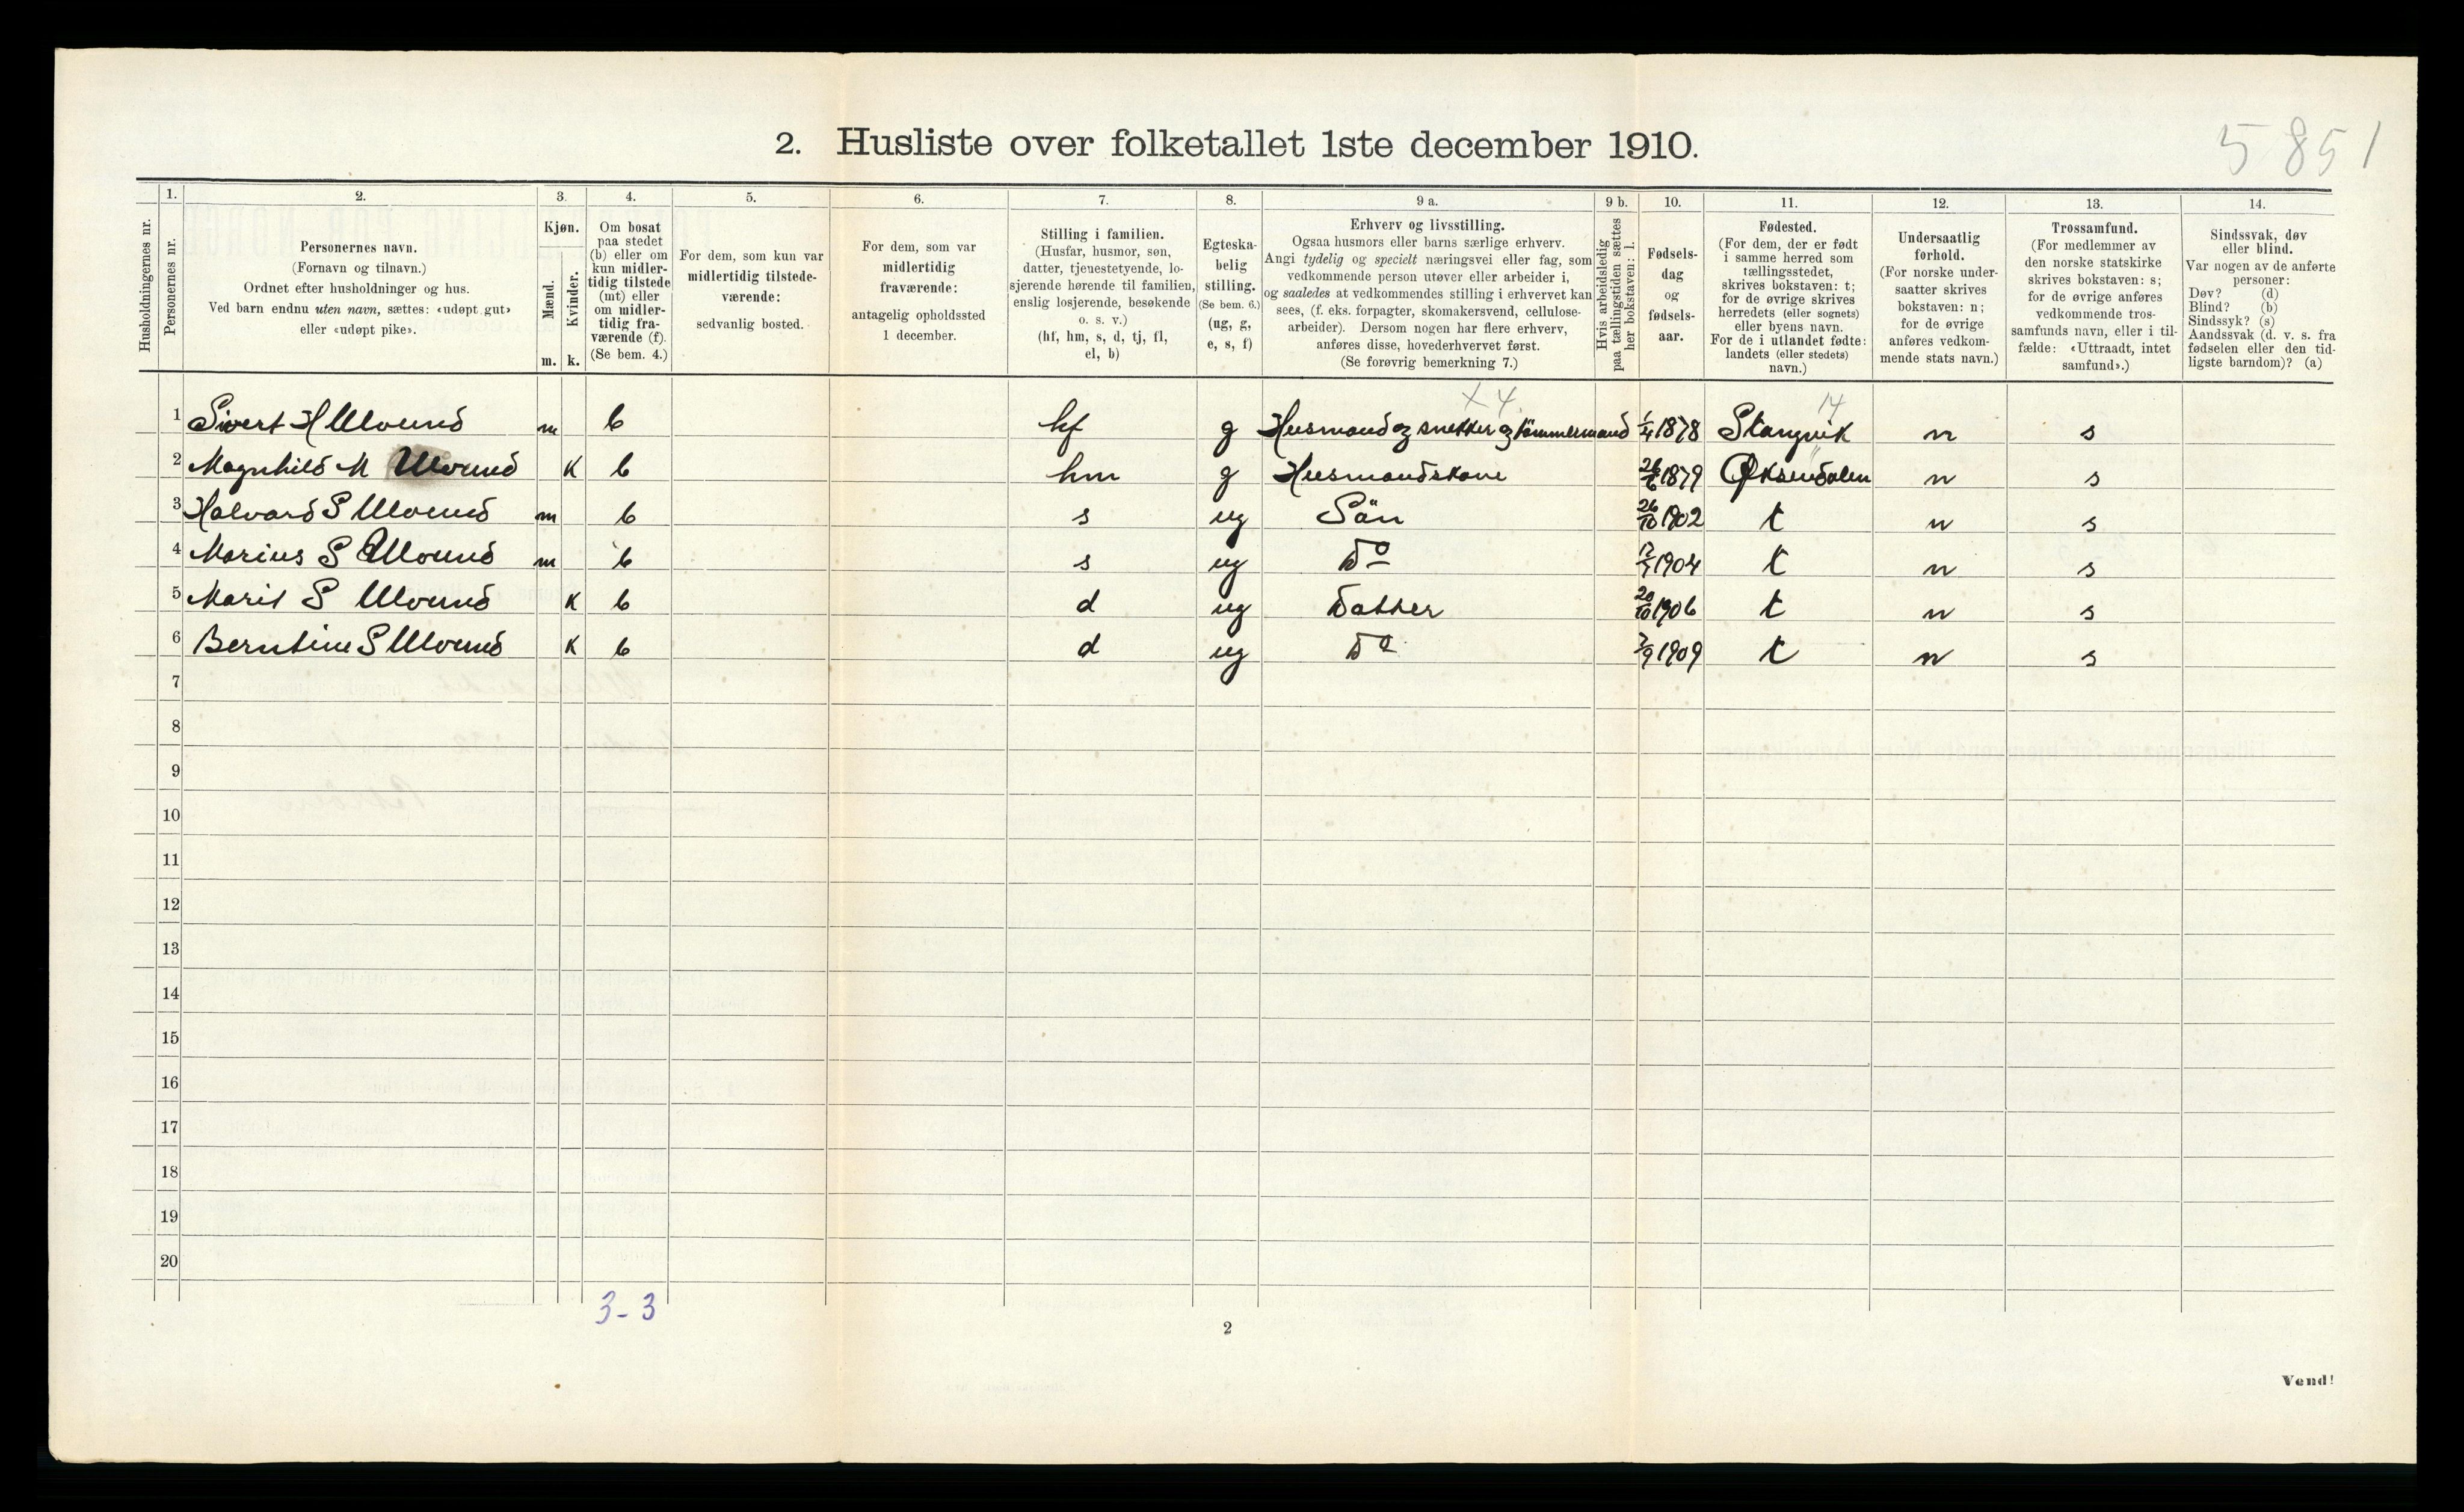 5851
2. Husliste over folketallet 1ste december 1910.
Husholdningernes nr.
1. Personernes nr.
2. Personernes navn.
(Fornavn og tilnavn.)
Ordnet efter husholdninger og hus.
Ved barn endnu uten navn, sættes: «udøpt gut»
eller «udøpt pike».
3. Kjøn.
Mænd. m.
Kvinder. k.
4. Om bosat
paa stedet
(b) eller om
kun midler-
tidig tilstede
(mt) eller
om midler-
tidig fra-
værende (f).
(Se bem. 4.)
5. For dem, som kun var
midlertidig tilstede-
værende:
sedvanlig bosted.
6. For dem, som var
midlertidig
fraværende:
antagelig opholdssted
1 december.
7. Stilling i familien.
(Husfar, husmor, søn,
datter, tjenestetyende, lo-
sjerende hørende til familien,
enslig losjerende, besøkende
o. s. v.)
(hf, hm, s, d, tj, fl,
el, b)
8. Egteska-
belig
stilling.
(Se bem. 6.)
(ug, g,
e, s, f)
9 a. Erhverv og livsstilling.
Ogsaa husmors eller barns særlige erhverv.
Angi tydelig og specielt næringsvei eller fag, som
vedkommende person utøver eller arbeider i,
og saaledes at vedkommendes stilling i erhvervet kan
sees, (f. eks. forpagter, skomakersvend, cellulose-
arbeider). Dersom nogen har flere erhverv,
anføres disse, hovederhvervet først.
(Se forøvrig bemerkning 7.)
9 b. Hvis arbeidsledig
paa tællingstiden sættes
her bokstaven: l.
10. Fødsels-
dag
og
fødsels-
aar.
11. Fødested.
(For dem, der er født
i samme herred som
tællingsstedet,
skrives bokstaven: t;
for de øvrige skrives
herredets (eller sognets)
eller byens navn.
For de i utlandet fødte:
landets (eller stedets)
navn.)
12. Undersaatlig
forhold.
(For norske under-
saatter skrives
bokstaven: n;
for de øvrige
anføres vedkom-
mende stats navn.)
13. Trossamfund.
(For medlemmer av
den norske statskirke
skrives bokstaven: s;
for de øvrige anføres
vedkommende tros-
samfunds navn, eller i til-
fælde: «Uttraadt, intet
samfund».)
14. Sindssvak, døv
eller blind.
Var nogen av de anførte
personer:
Døv? (d)
Blind? (b)
Sindssyk? (s)
Aandssvak (d. v. s. fra
fødselen eller den tid-
ligste barndom)? (a)
X 4. 14
1 Sivert H Ulvund m b hf g Husmand og snekker og tömmermand 1/4 1878 Stangvik n s
2 Magnhild M Ulvund K b hm g Husmandskone 1879 Øksendalen n s
3 Halvard S Ulvund m b s ug Sön 26/10 1902 t n s
4 Marius S Ulvund m b s ug Do 1904 t n s
5 Marit S Ulvund K b d ug Datter 20/10 1906 t n s
6 Berntine S Ulvund K b d ug Do 1909 t n s
7
8
9
10
11
12
13
14
15
16
17
18
19
20
3-3
2
Vend!